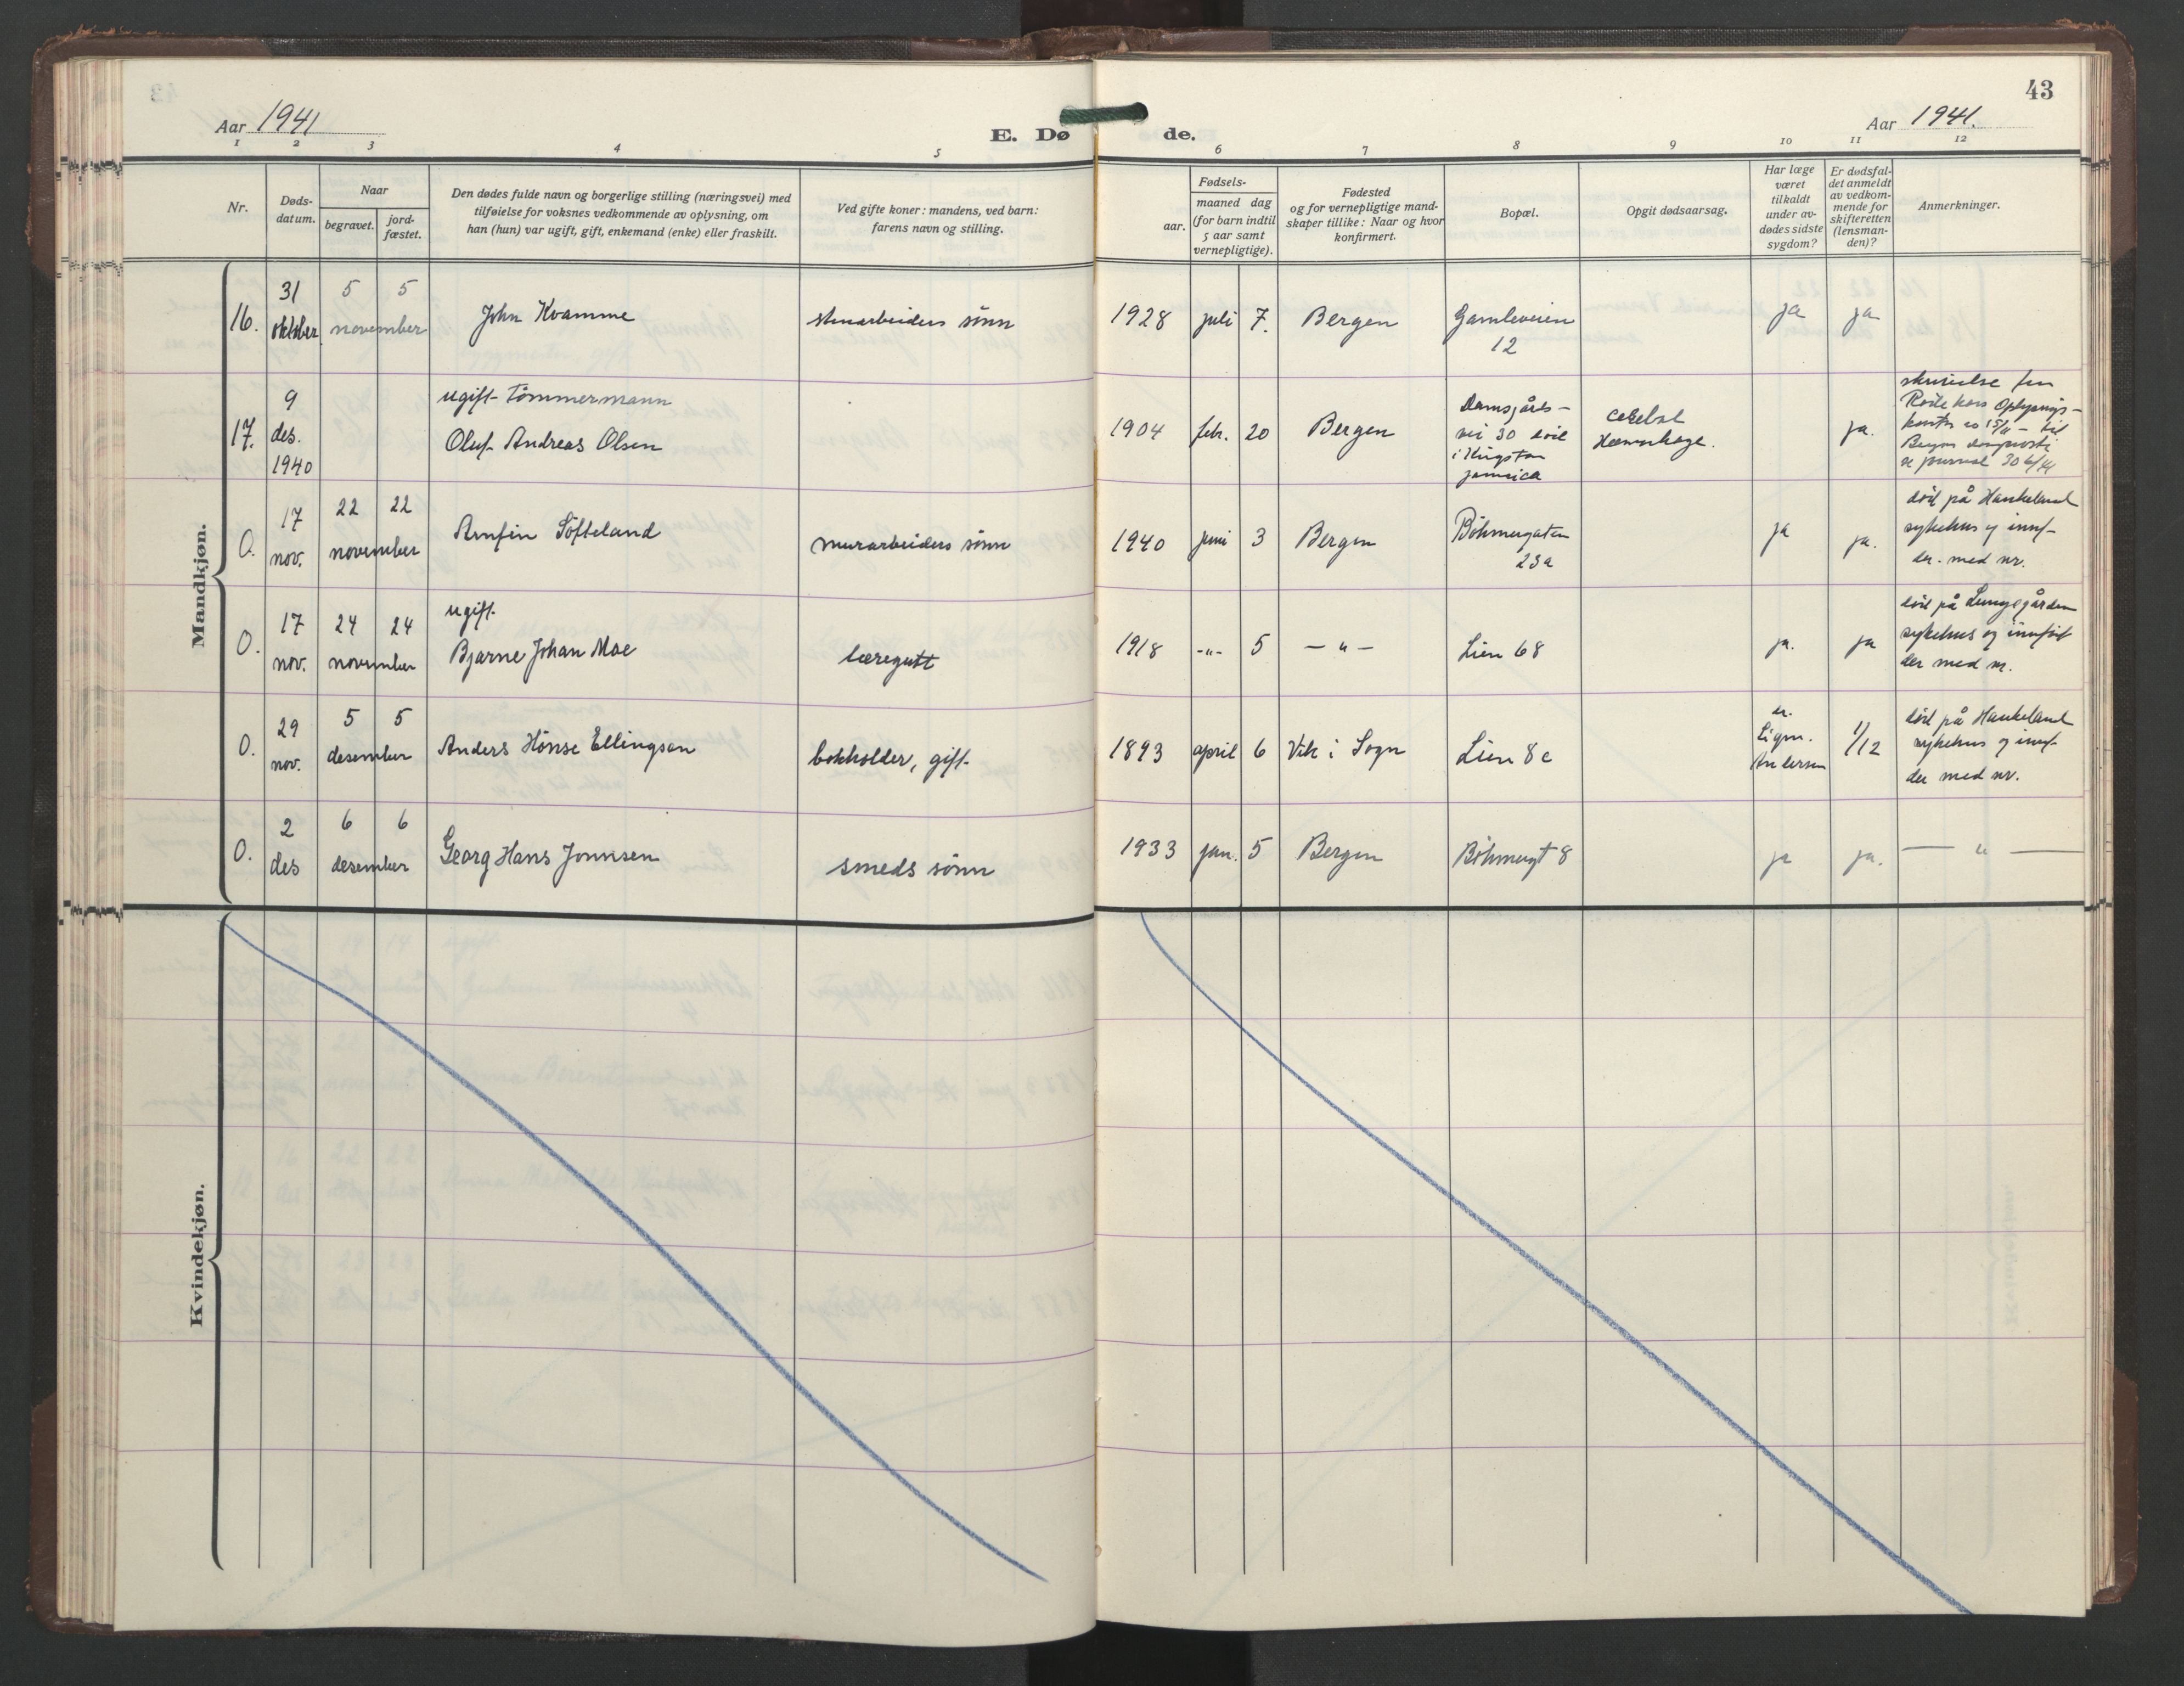 43
Aar 1941
E. Døde.
Aar 1941.
1 2 3 4 5 6 7 8 9 10 11 12
Nr.
Døds-
datum.
Naar
begravet.
jord-
fæstet.
Den dødes fulde navn og borgerlige stilling (næringsvei) med
tilføielse for voksnes vedkommende av oplysning, om
han (hun) var ugift, gift, enkemand (enke) eller fraskilt.
Ved gifte koner: mandens, ved barn:
farens navn og stilling.
Fødsels-
aar.
maaned dag
(for barn indtil
5 aar samt
vernepligtige).
Fødested
og for vernepligtige mand-
skaper tillike: Naar og hvor
konfirmert.
Bopæl.
Opgit dødsaarsag.
Har læge
været
tilkaldt
under av-
dødes sidste
sygdom?
Er dødsfal-
det anmeldt
av vedkom-
mende for
skifteretten
(lensman-
den)?
Anmerkninger.
Mandkjøn.
16.
31
oktober
5 5
november
John Kvamme
stenarbeiders sønn
1928 juli 7.
Bergen
Gamleveien
12
ja
ja
17.
9
des.
1940
ugift Tømmermann
Oluf Andreas Olsen
1904 febr. 20
Bergen
Damsgårds-
vei 30 död
i Kingston
Jamaica
cerebral
ja.
Røde kors Oplysnings-
O.
17
nov.
22 22
november
Arnfin Söfteland
murarbeiders sönn
1940 juni 3
Bergen
Böhmergaten
23a
ja
ja.
död på Haukeland
sykehus og innf-
der. med nr.
O.
17
nov.
24 24
november
ugift
Bjarne Johan Moe
læregutt
1918 -"- 5
- " -
Lien 68
ja.
ja
död på Lungegården
sykehus og innfört
der med nr.
O.
29
nov.
5 5
desember
Anders Hönse Ellingsen
bokholder, gift
1893 april 6
Vik i Sogn
Lien 8c
dr.
Sigm.
Andersen
1/12
död på Haukeland
sykehus og innf-
der med nr.
O.
2
des
6 6
desember
Georg Hans Jonnsen
smeds sönn
1933 jan. 5
Bergen
Böhmergt 8
ja
ja.
— " —
Kvindekjøn.